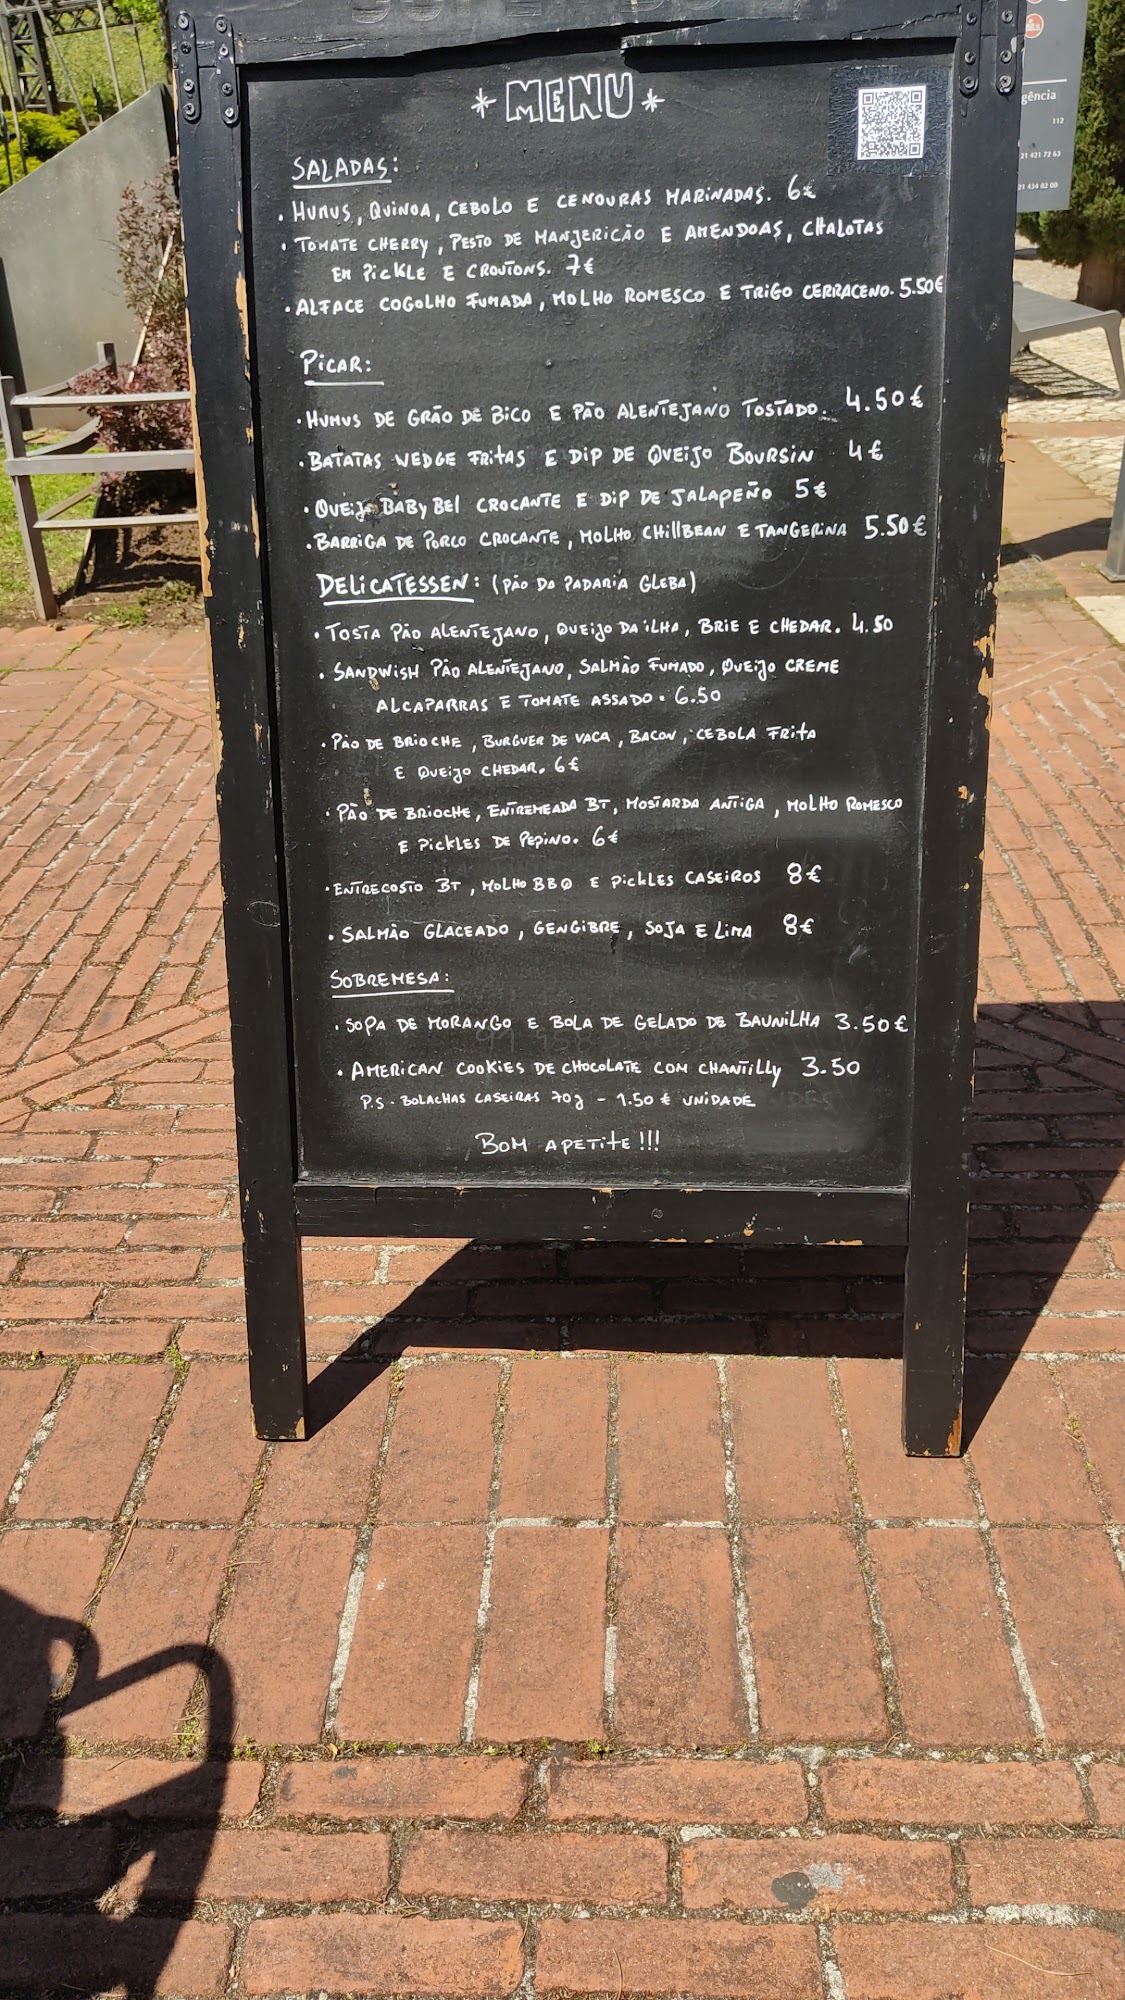 * MENU *
SALADAS:
• HUMUS, QUINOA, CEBOLO E CENOURAS MARINADAS. 6€
• TOMATE CHERRY, PESTO DE MANJERICÃO E AMENDOAS, CHALOTAS
EM PICKLE E CROUTONS. 7€
• ALFACE COGOLHO FUMADA, MOLHO ROMESCO E TRIGO CERRACENO. 5.50€
PICAR:
• HUMUS DE GRÃO DE BICO E PÃO ALENTEJANO TOSTADO. 4.50€
• BATATAS WEDGE FRITAS E DIP DE QUEIJO BOURSIN 4€
• QUEIJO BABYBEL CROCANTE E DIP DE JALAPEÑO 5€
• BARRIGA DE PORCO CROCANTE, MOLHO CHILLBEAN E TANGERINA 5.50€
DELICATESSEN: (PÃO DA PADARIA GLEBA)
• TOSTA PÃO ALENTEJANO, QUEIJO DA ILHA, BRIE E CHEDAR. 4.50
• SANDWISH PÃO ALENTEJANO, SALMÃO FUMADO, QUEIJO CREME
ALCAPARRAS E TOMATE ASSADO. 6.50
• PÃO DE BRIOCHE, BURGUER DE VACA, BACON, CEBOLA FRITA
E QUEIJO CHEDAR. 6€
• PÃO DE BRIOCHE, ENTREMEADA BT, MOSTARDA ANTIGA, MOLHO ROMESCO
E PICKLES DE PEPINO. 6€
• ENTRECOSTO BT, MOLHO BBQ E PICKLES CASEIROS 8€
• SALMÃO GLACEADO, GENGIBRE, SOJA E LIMA 8€
SOBREMESA:
• SOPA DE MORANGO E BOLA DE GELADO DE BAUNILHA 3.50€
• AMERICAN COOKIES DE CHOCOLATE COM CHANTILLY 3.50
P.S - BOLACHAS CASEIRAS 70g - 1.50€ UNIDADE
BOM APETITE!!!
gência
112
21 421 72 63
21 434 82 00